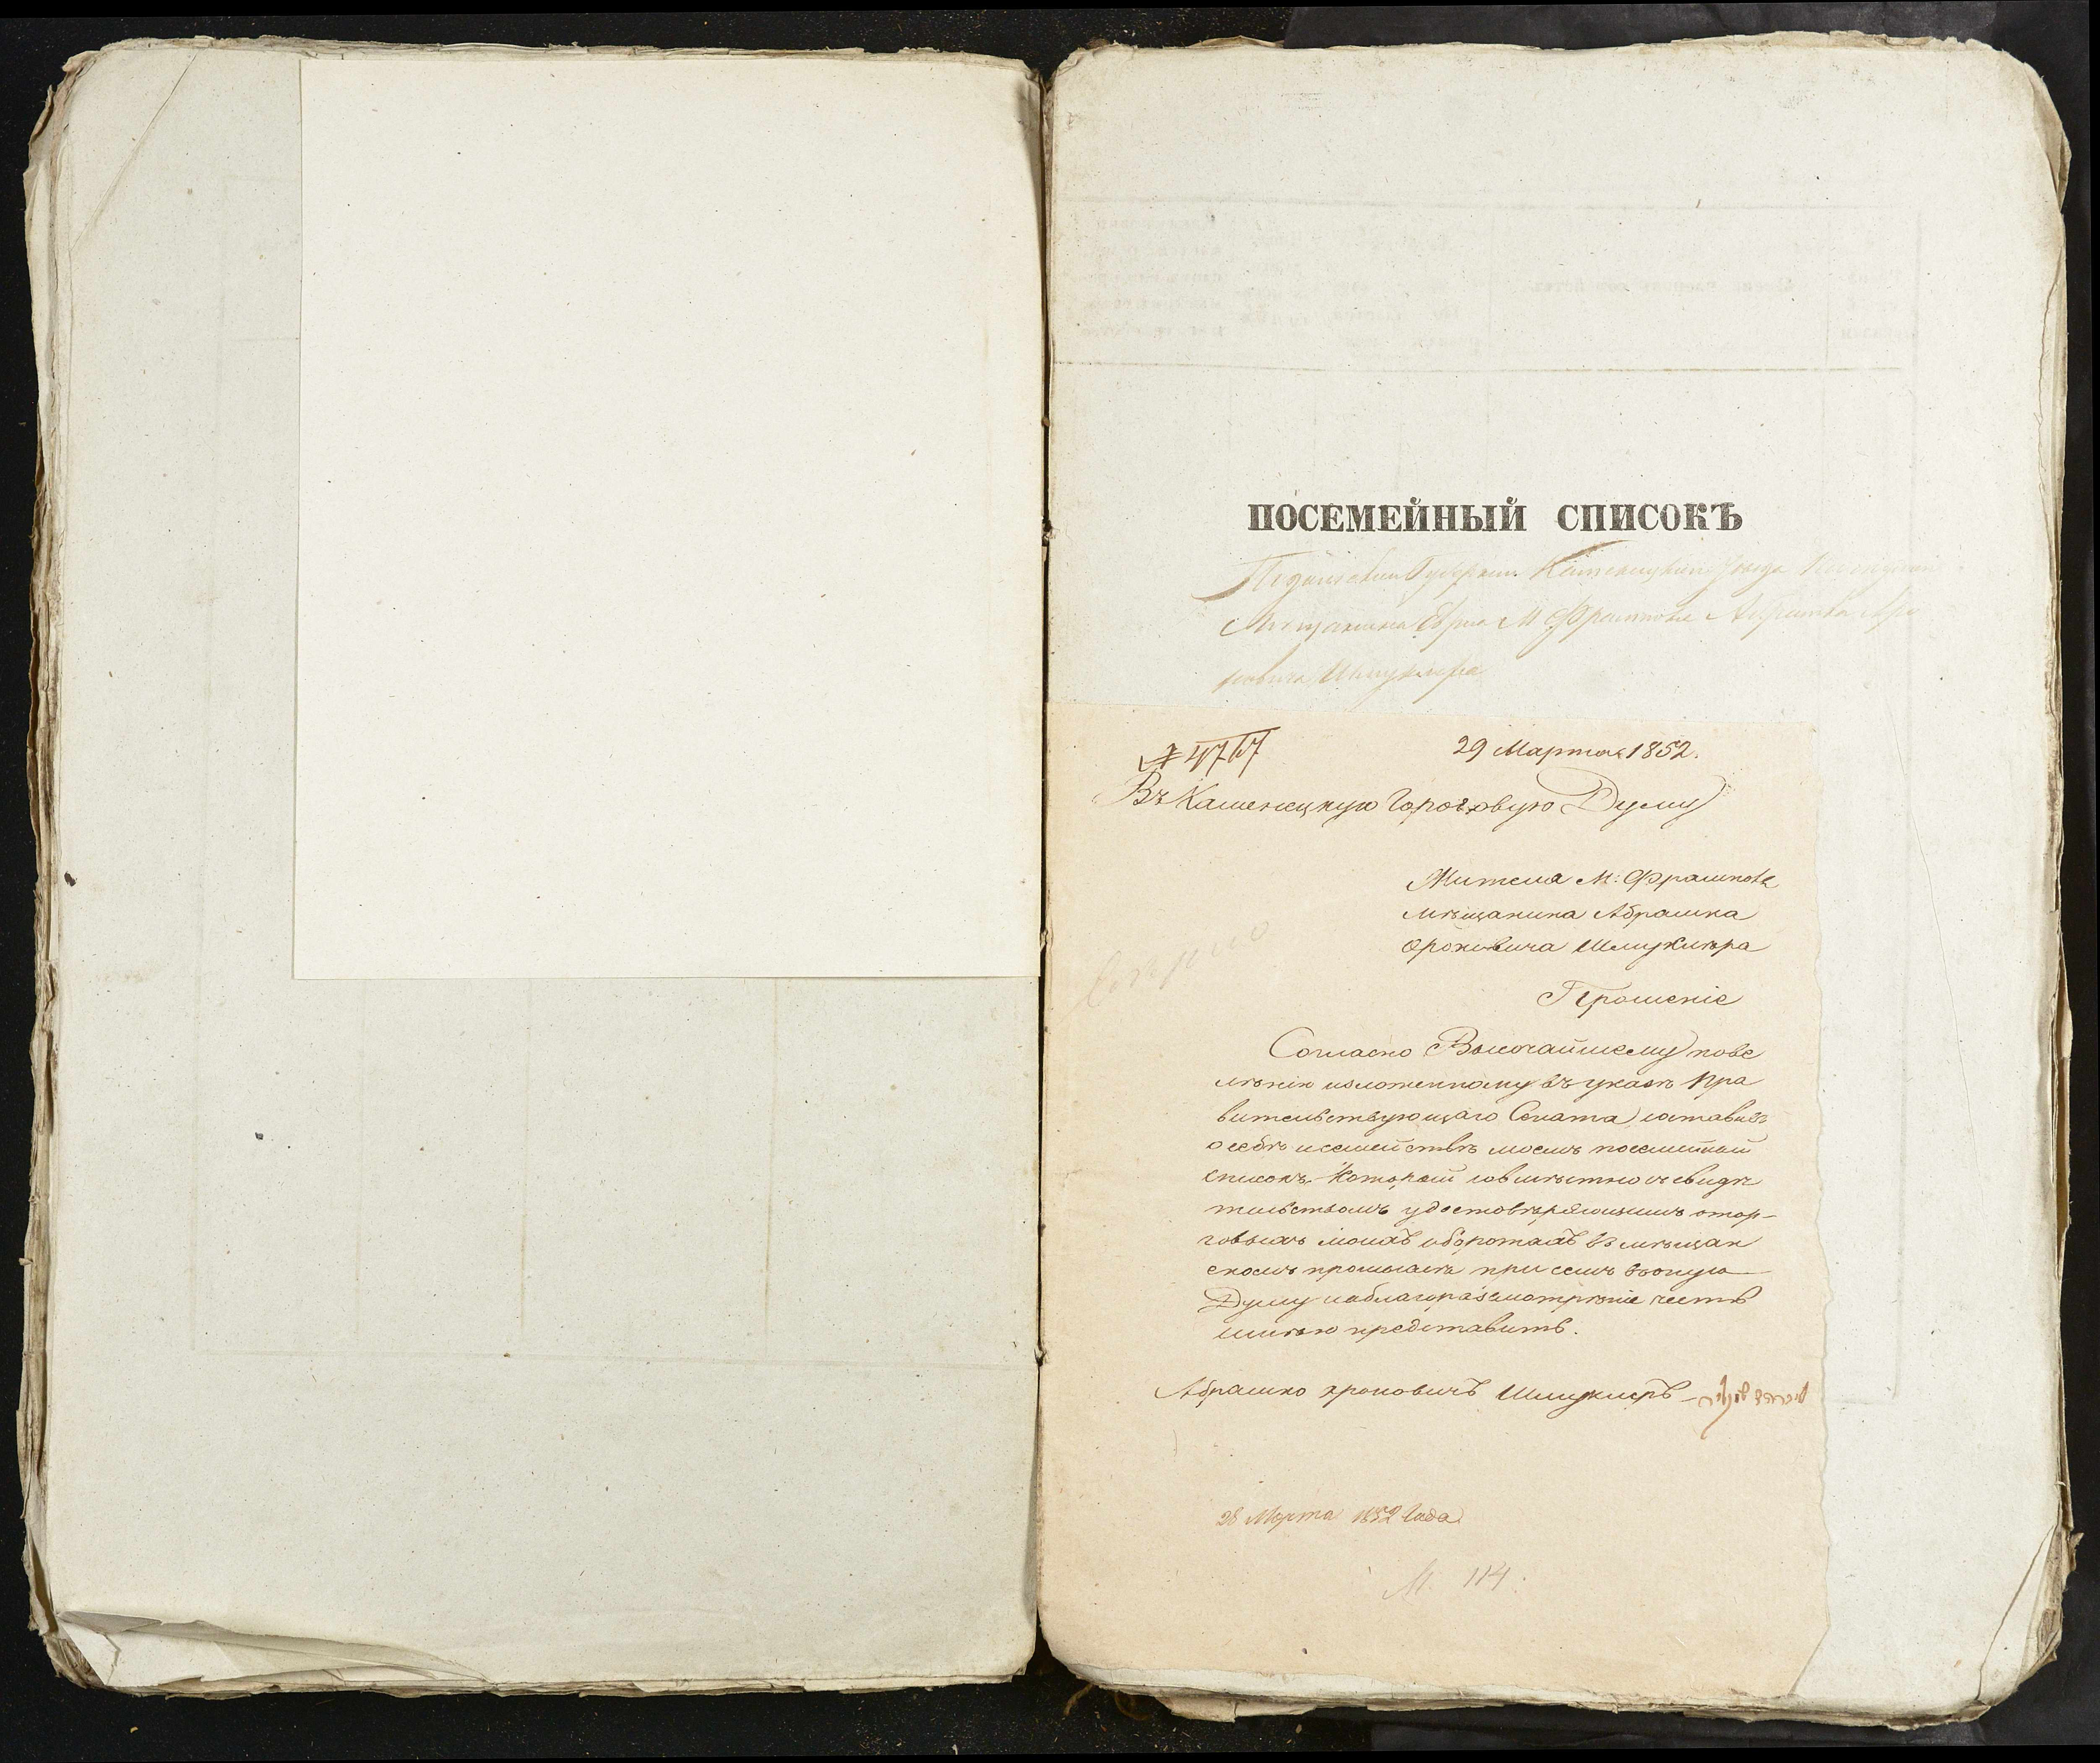 ПОСЕМЕЙНЫЙ СПИСОКЪ
Подольской Губернии Каменецкаго Уезда
Мещанина Еврея М Фрамповъ Абрашка Аро
новича Шмуклера
№ 4767
29 Марта 1852.
Въ Каменецкую Городовую Думу
Жителя М: Фрампова
мѣщанина Абрашка
Ороновича Шмуклѣра
Прошеніе
Согласно Высочайшему пове
лѣнію изложенному въ указѣ Пра
вительствующаго Сената, составивъ
о себѣ и семействѣ моемъ посемейный
списокъ, который совмѣстно съ свидѣ
тельствомъ удостовѣряющимъ о тор-
говыхъ моихъ оборотахъ въ мѣщан
скомъ промыслѣ при семъ въ оную
Думу на благоразсмотрѣніе честь
имѣю представить.
Абрашко Ароновичъ Шмуклеръ
28 Марта 1852 Года
М. 114.